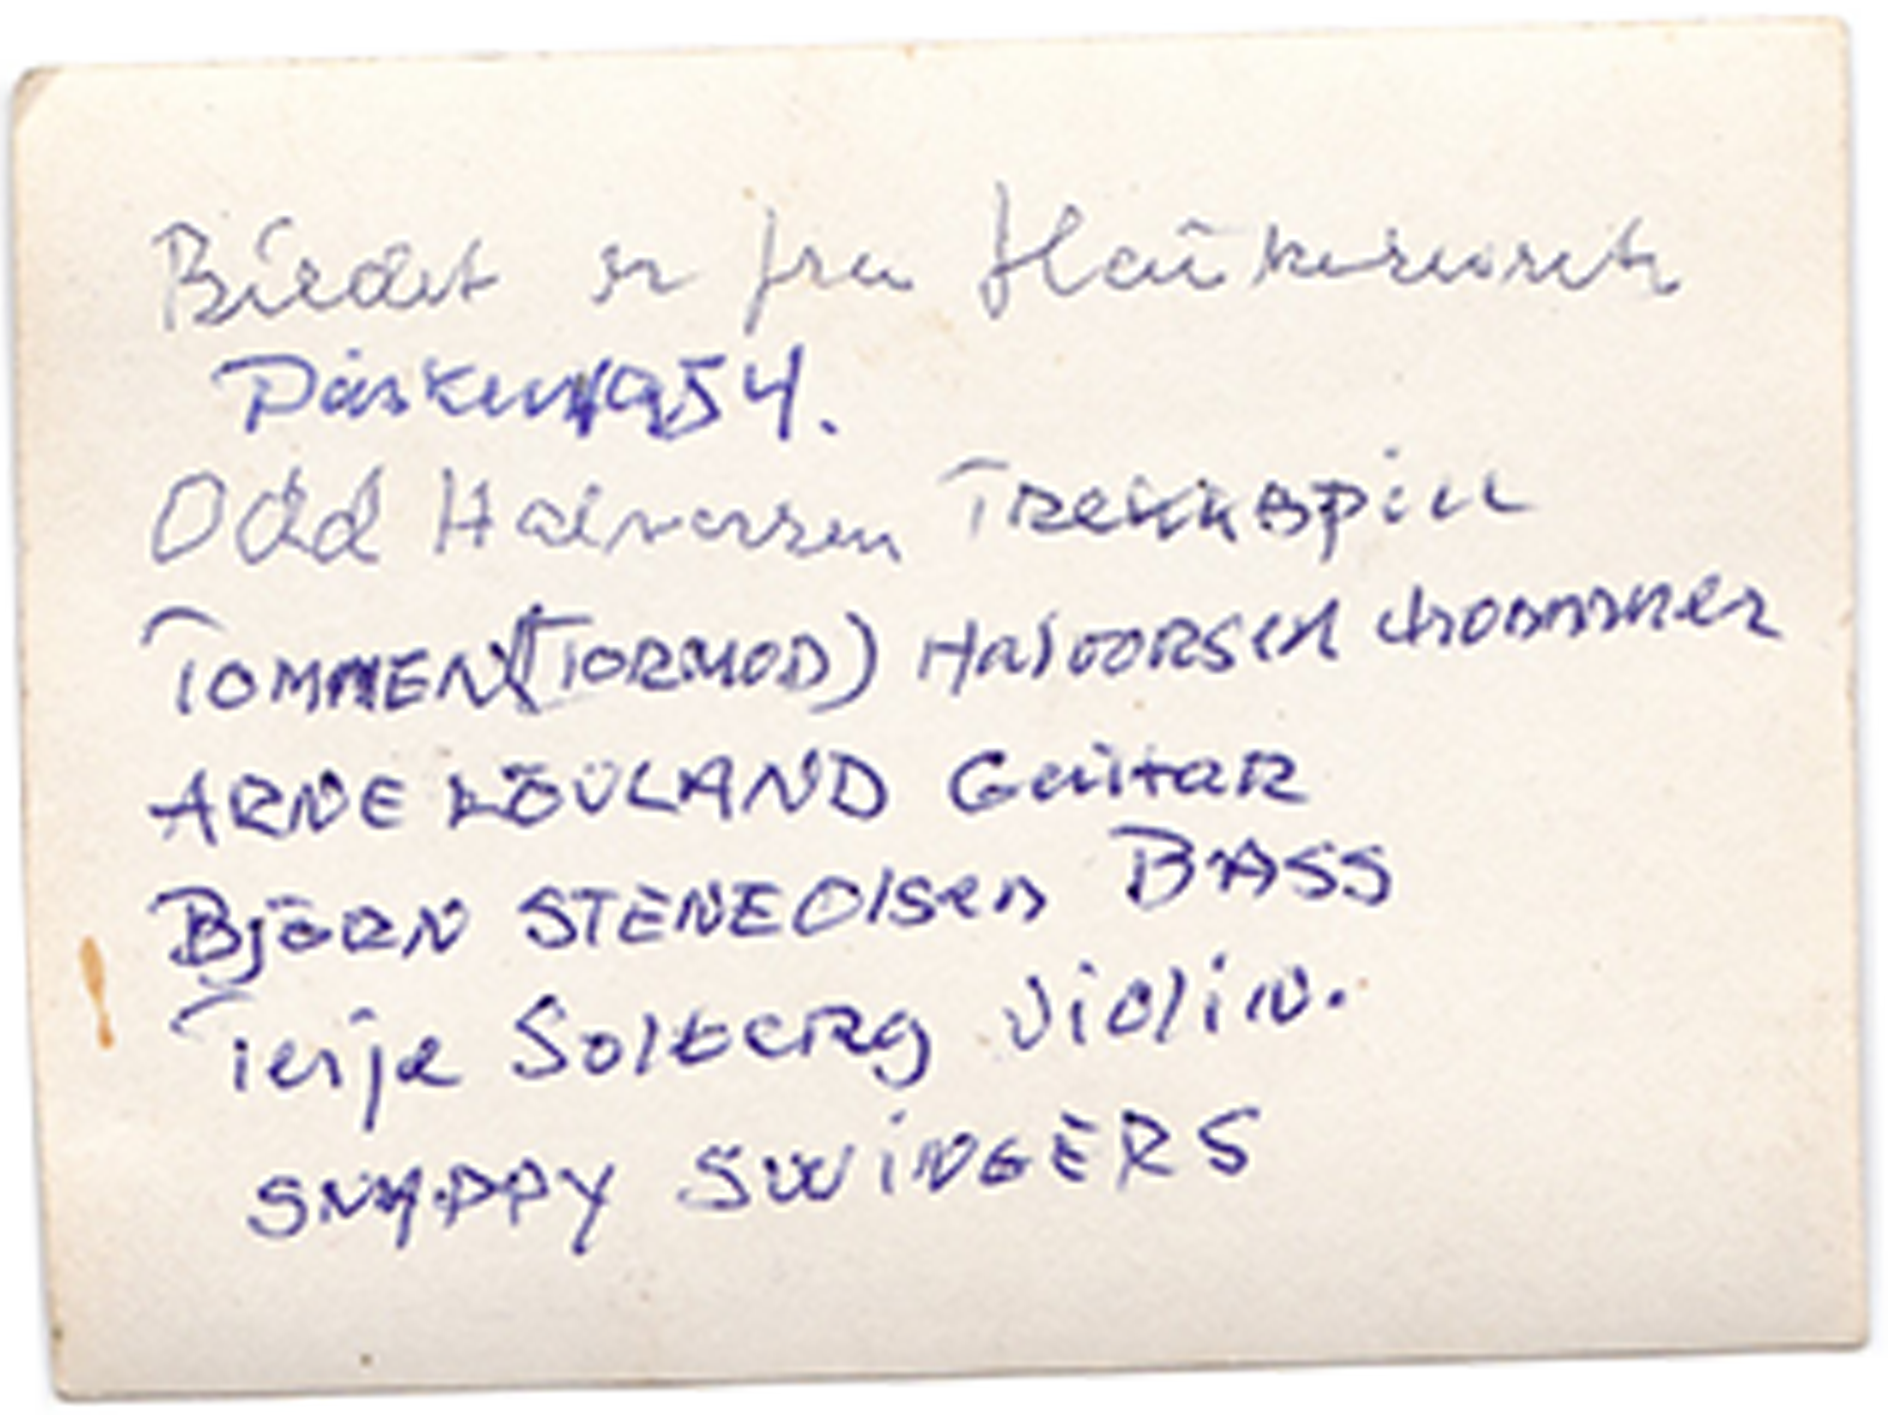 Bildet er fra Haukeliseter
Påsken 1954.
Odd Halvorsen Trekkspill
TOMMEN (TORMOD) Halvorsen trommer
ARNE LÖVLAND Guitar
Björn STENEOlsen BASS
Terje Solberg Violin.
SNAPPY SWiNGERS